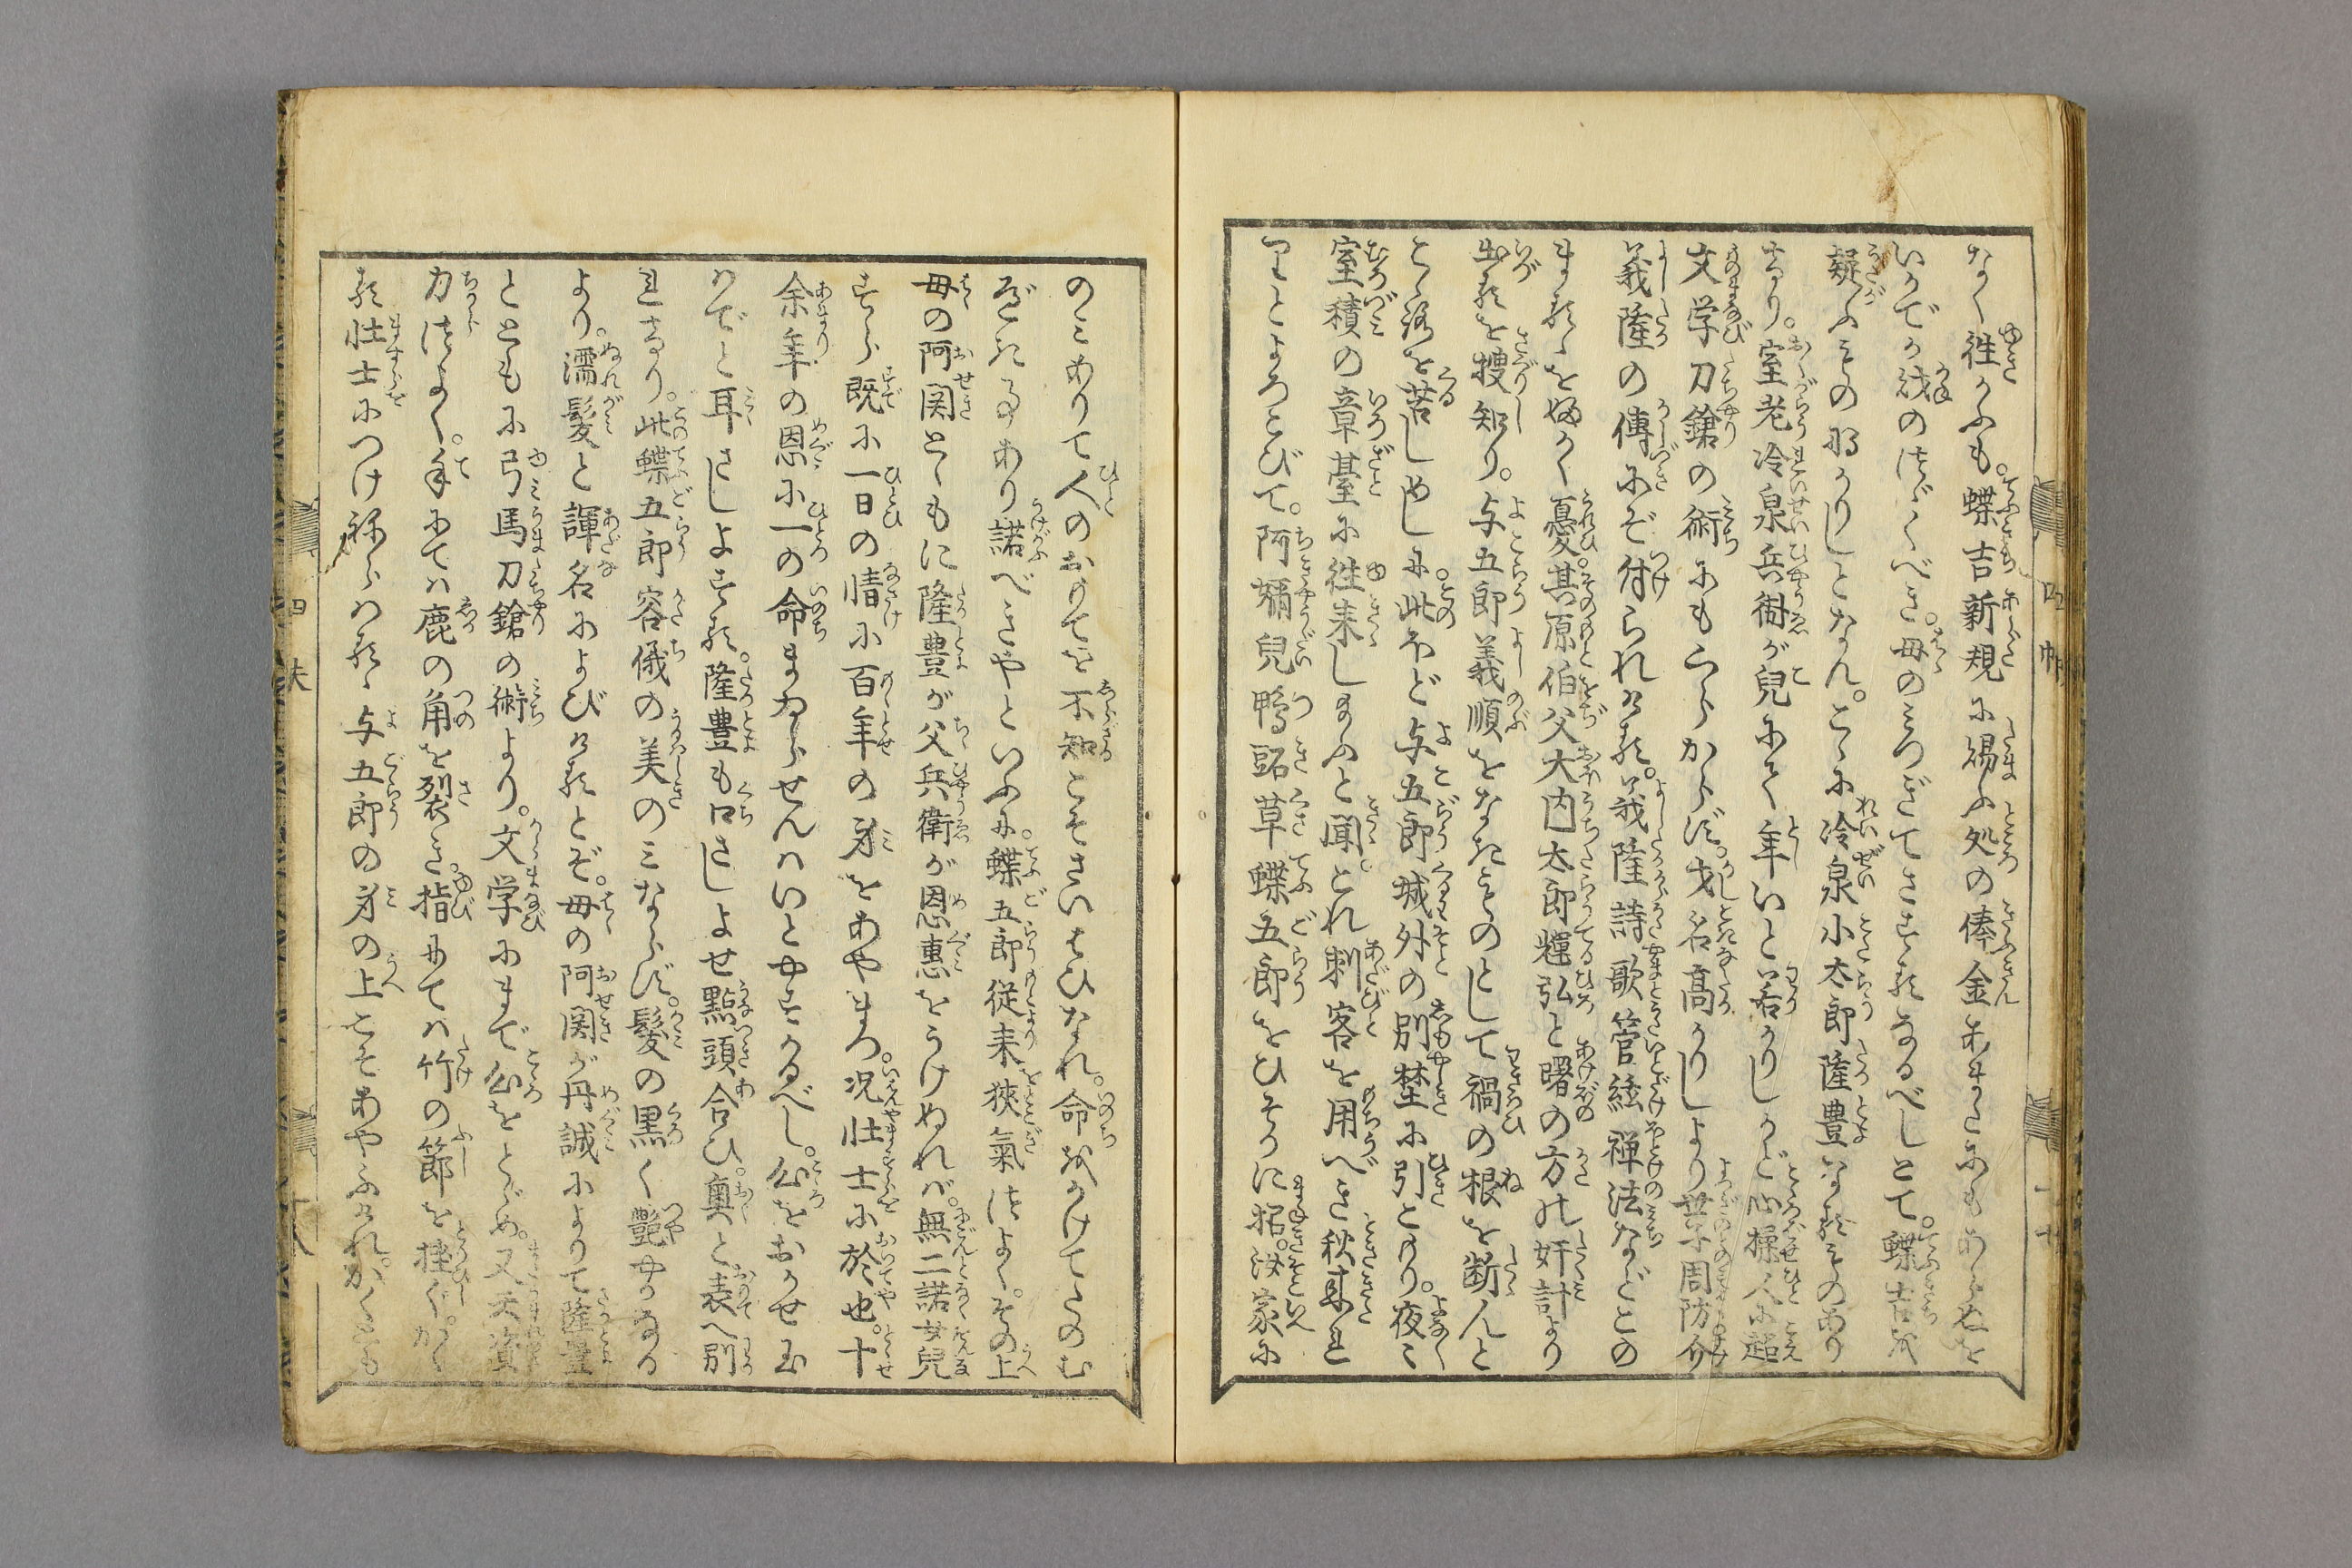 なく往かふも。蝶吉新規に賜ふ処の俸金あまたあもあらぬを
いかでか絨のはつくべき。母のみつぎてさする なるべしとて。蝶吉を
疑ふものゝ那かりしとなん。こゝに冷泉小太郎隆豊なるものあり
けり。室老冷泉兵衛が児にて年いと若かりしかど心操人に超
文学刀鎗の術にもくらからず。才名高かりしより世子周防介
義隆の傅にぞ付られける。義隆詩歌管絃禅法などこの
まるゝを幼なく憂。其原伯父大内太郎輝弘と曙の方の奸計より
出るを捜知り。与五郎義順をなきものとして禍の根を断んと
こゝろを苦しめしに。此ほど与五郎城外の別埜に引こもり。夜々
室積の章臺に往来し給ふと聞。これ刺客を用べき秋来れ
りとよろこびて。阿孺児鴨頭草蝶五郎をひそかに招。汝家に
のみありて人のおもてを不知こそさいはひなれ。命にかけてたのむ
べき事あり諾べきやといふに。蝶五郎従来狭氣つよく。その上
母の阿関とゝもに隆豊が父兵衛が恩恵をうけぬれば。無二諾女児
すら既に一日の情に百年の身をあやまつ。况壮士に於也。十
余年の恩に一の命まゐらせんはいとやすかるべし。公をおかせ玉
はでと耳さしよする。隆豊も口さしよせ點頭合ひ。奥と表へ別
れけり。此蝶五郎容儀の美のみならず。髪の黒く艶やかなる
より。濡髪と諢名によびけるとぞ。母の阿関が丹誠によりて隆豊
とともに弓馬刀鎗の術より。文学にまで公をとゞめ。又天資
力つよく。手にては鹿の角を裂き。指にては竹の節を挫ぐ。かく
る壮士につけねらはるゝ与五郎の身の上こそあやふけれ。かくとも
四 夫 十八